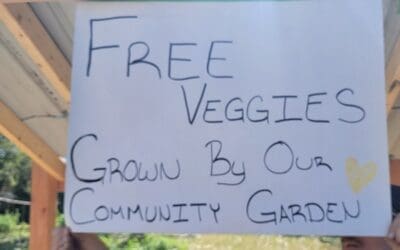 FREE
VEGGIES
GROWN BY OUR
COMMUNITY GARDEN